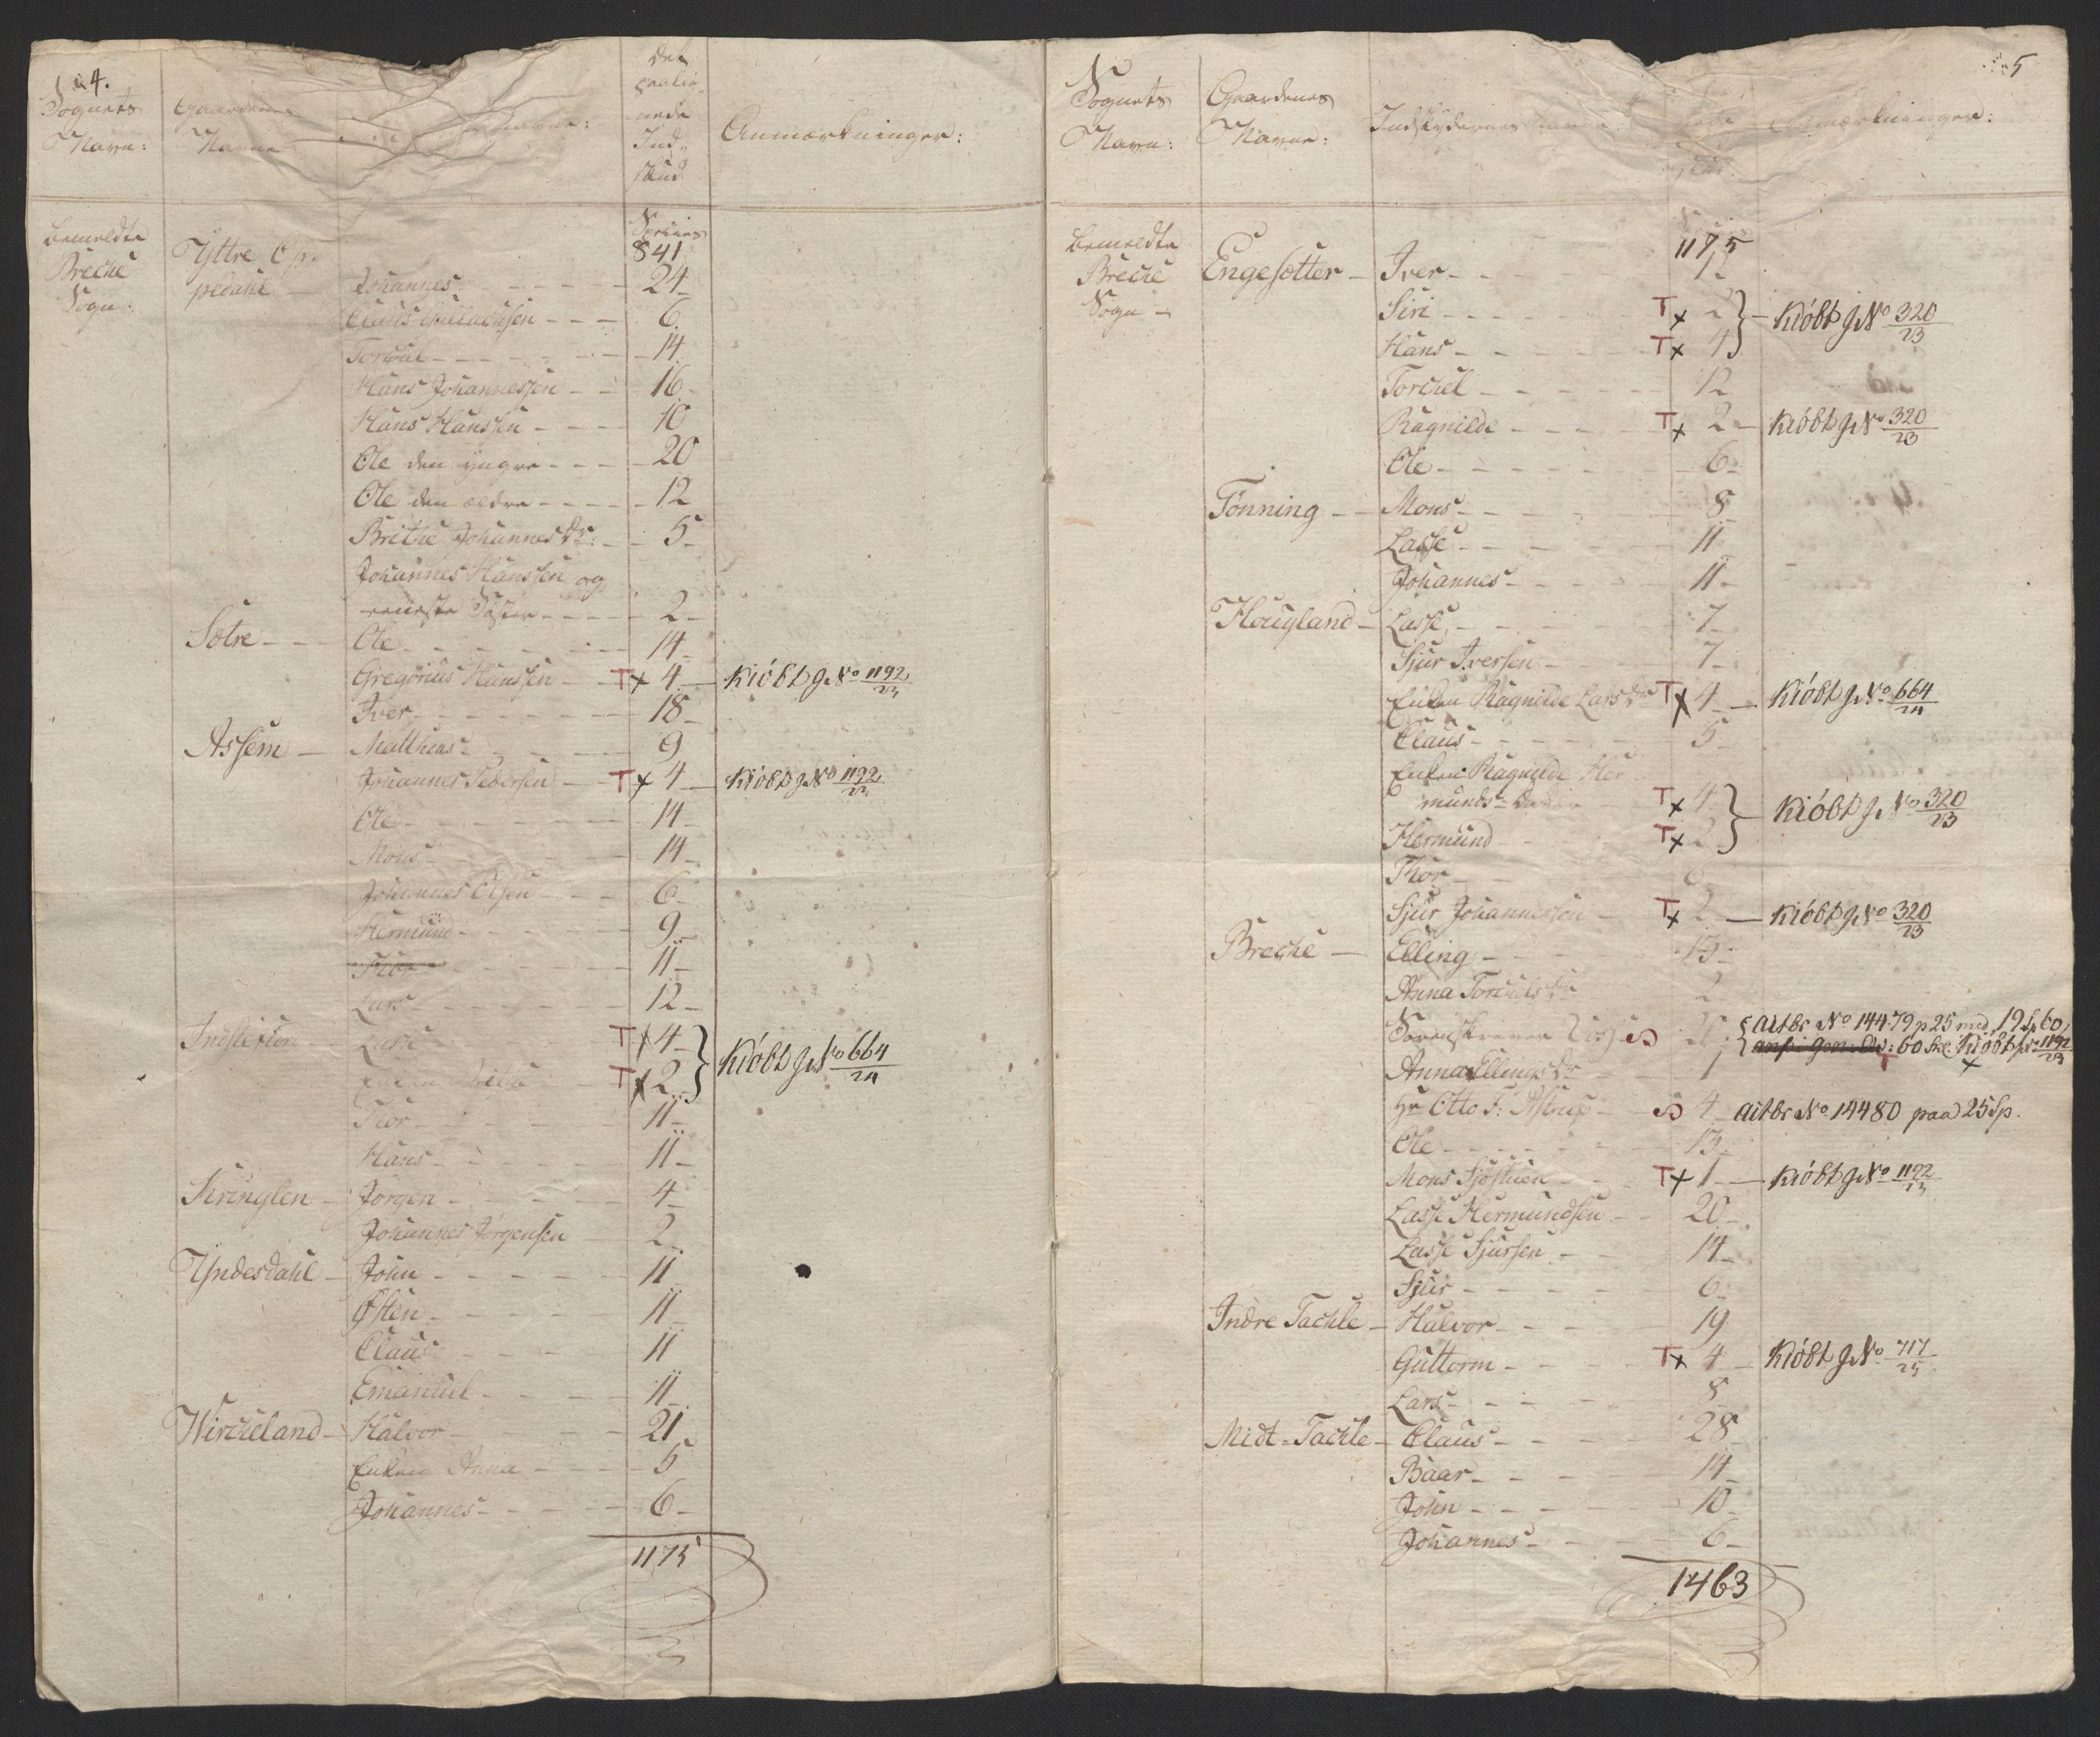 4.
Sognets Navn:
Gaardenes Navne
Navne:
Det paalig-
nede
Ind-
skud
Anmærkninger:
bemeldte
Breche
Sogn:
Species
841
Yttre Op-
pedahl — Johannes - - - 24
Claus - - - 6
Torchel - - - 14
Hans Johannessen - - 16
Hans Hanssen - - - 10
Ole den yngre - - - 20
Ole den ældre - - - 12
Brithe Johannes Dr: - - 5
Johannes Hanssen og
Søster - - - 2
Sotre - - Ole - - - 14
Gregorius Hanssen - T x 4 — Kiöbt J. No 1192/23
Iver - - - 18
Assem — Matthias - - - 9
Johannes Pedersen — T x 4 — Kiöbt J. No 1192/23
Ole - - - 14
Mons - - - 14
Johannes Olsen - - - 6
Hermund - - - 9
Thor - - - 11
Lars - - - 12
Lasse T x 4 } Kiöbt J. No 664/24
Enken T x 2
Thor - - - 11
Hans - - - 11
Kringlen — Jörgen - - - 4
Johannes Jörgensen 2
Yndesdahl — John - - - 11
Østen - - - 11
Claus - - - 11
Emanuel - - - 11
Wircheland — Halvor - - - 21
Enken Anna - - - 5
Johannes - - - 6
1175
5
Sognets
Navn:
Gaardenes
Navne:
Indskydernes Navne
Anmærkninger:
bemeldte
Breche
Sogn -
1175
Engesætter — Iver - - 12
Siri - - - T x 2 } — Kiöbt J. No 320/23
Hans - - - T x 4
Torchel - - - 12
Ragnilde - - - T x 2 — Kiöbt J. No 320/23
Ole - - - 6
Tønning - - Mons - - - 8
Lasse - - - 11
Johannes - - - 11
Hougland — Lasse - - - 7
Sjur Iversen - 7
Enken Ragnilde Lars Dr T x 4 — Kiöbt J. No 664/24
Claus - - - 5
Enken Ragnilde Her
munds- T x 4 } — Kiöbt J. No 320/23
Hermund T x 2
Thor - 6
Sjur Johannessen — T x 2 — Kiöbt J. No 320/23
Breche — Elling - - - 13
Anna Torchels Dr 2
Sorenskriver { Actbr No 14479 p 25 med 19 S. 60,
60 Sk. Kiöbt J. No 1192/23
Anna Ellings Dr 1
Hr Otto F: Astrup - 4 Actbr No 14480 paa 25 Sp.
Ole - - - 13
Mons Sjöstuen - T x 1 — Kiöbt J. No 1192/23
Lasse Hermundsen - - 20
Lasse Sjursen - - 14
Sjur - - - 6
Indre Tachle — Halvor - - - 19
Guttorm - - - T x 4 — Kiöbt J. No 717/25
Lars - - - 8
Midt-Tachle — Claus - - - 28
Baar - - - 14
John - - - 10
Johannes - - - 6
1463